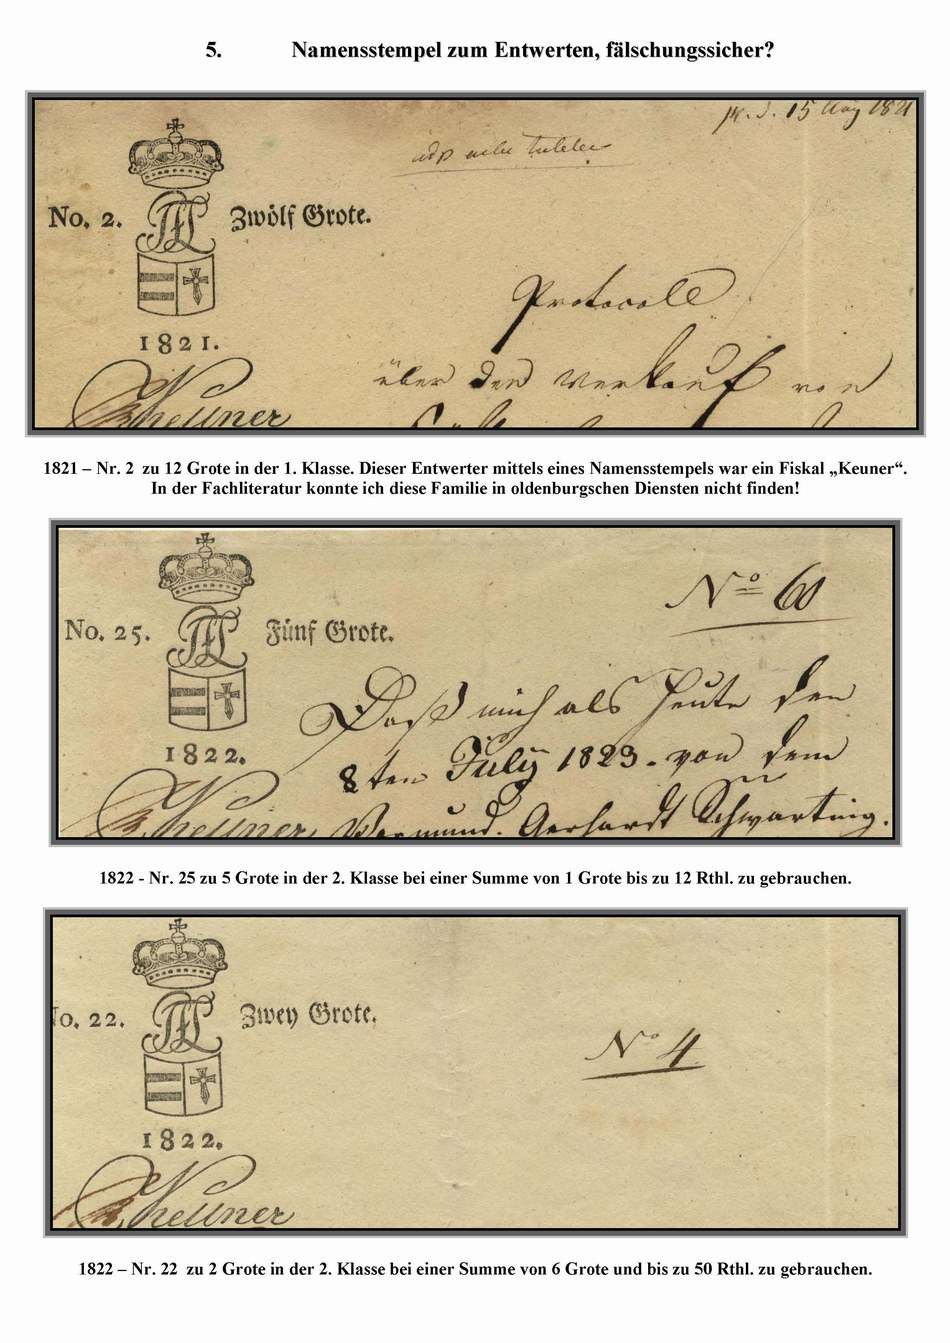 5. Namensstempel zum Entwerten, fälschungssicher?
pr. d. 15 Aug 1821
No. 2. Zwölf Grote.
Protocoll
1821.
über den Verkauf von
Keuner
1821 – Nr. 2 zu 12 Grote in der 1. Klasse. Dieser Entwerter mittels eines Namensstempels war ein Fiskal „Keuner“.
In der Fachliteratur konnte ich diese Familie in oldenburgschen Diensten nicht finden!
No 60
No. 25. Fünf Grote.
Daß mich als heute den
1822.
8ten July 1823. von dem
Keuner Vormund. Gerhardt Schwarting.
1822 - Nr. 25 zu 5 Grote in der 2. Klasse bei einer Summe von 1 Grote bis zu 12 Rthl. zu gebrauchen.
No. 22. Zwey Grote.
No 4
1822.
Keuner
1822 – Nr. 22 zu 2 Grote in der 2. Klasse bei einer Summe von 6 Grote und bis zu 50 Rthl. zu gebrauchen.